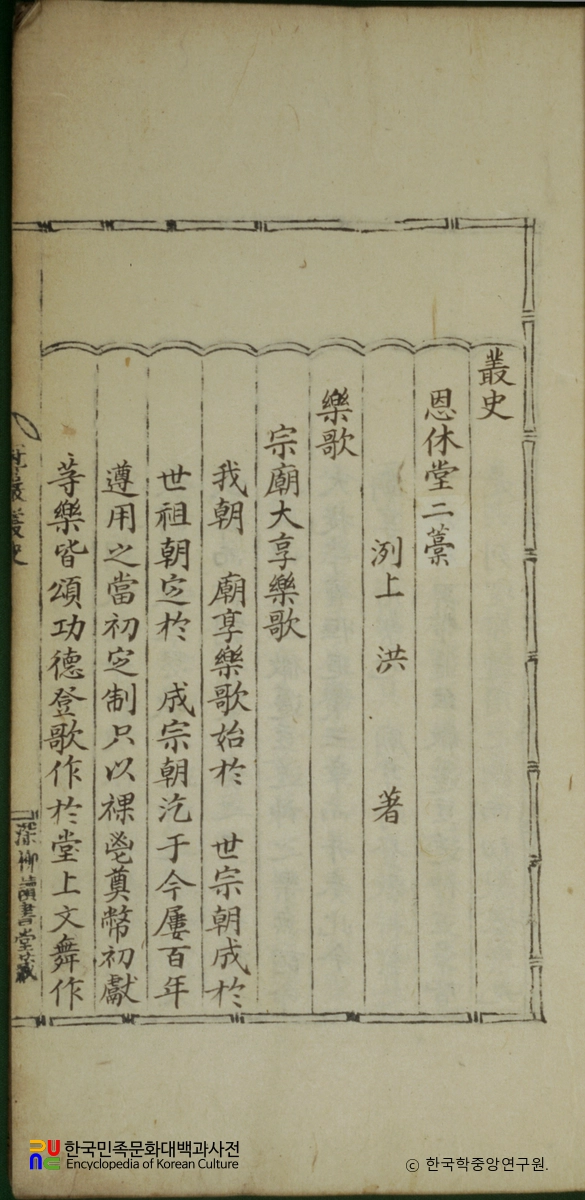 叢史
恩休堂二藁
洌上 洪 著
樂歌
宗廟大享樂歌
我朝 廟享樂歌始於 世宗朝成於
世祖朝定於 成宗朝汔于今屢百年
遵用之當初定制只以祼鬯奠幣初獻
等樂皆頌功德登歌作於堂上文舞作
叢史
深柳讀書堂藏
한국민족문화대백과사전
Encyclopedia of Korean Culture
ⓒ 한국학중앙연구원.